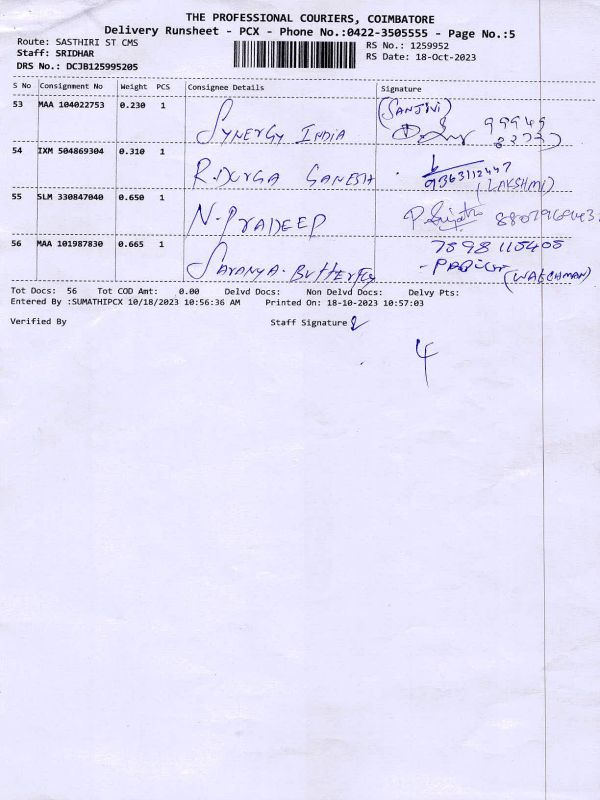 THE PROFESSIONAL COURIERS, COIMBATORE
Delivery Runsheet - PCX - Phone No.:0422-3505555 - Page No.:5
Route: SASTHIRI ST CMS
RS No.: 1259952
Staff: SRIDHAR
RS Date: 18-Oct-2023
DRS No.: DCJB125995205
S No Consignment No Weight PCS Consignee Details Signature
53 MAA 104022753 0.230 1 SYNERGY INDIA (SANJIVI) 99949
54 IXM 504869304 0.310 1 R.DURGA GANESH 9363112447
(LAKSHMI)
55 SLM 330847040 0.650 1 N.PRADEEP
56 MAA 101987830 0.665 1 SARANYA.BUTTERFLY 7598115405
(WAECHMAN)
Tot Docs: 56 Tot COD Amt: 0.00 Delvd Docs: Non Delvd Docs: Delvy Pts:
Entered By :SUMATHIPCX 10/18/2023 10:56:36 AM Printed On: 18-10-2023 10:57:03
Verified By Staff Signature
4